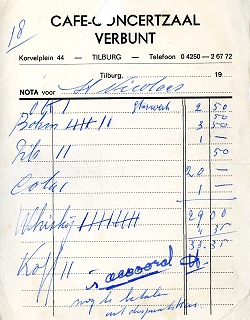 18
CAFE-CONCERTZAAL
VERBUNT
Korvelplein 44 — TILBURG — Telefoon 0 4250 - 2 66 72
Tilburg, 19
NOTA voor St Nicolaas
2 50
3 50
1 —
50
Cola 1
20 —
1 —
Whisky
29 00
4 35
33.35
Koff 11
is accoord
nog te betalen